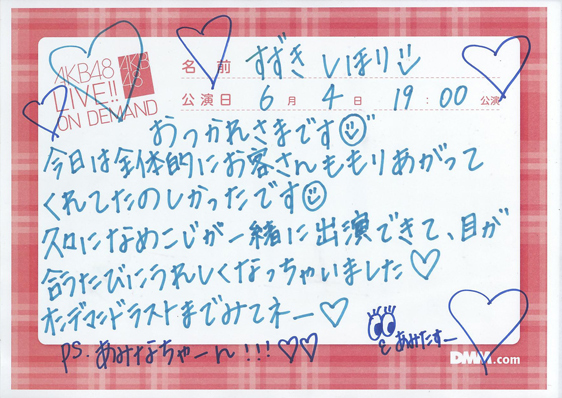 AKB48
LIVE!!
ON DEMAND
AKB
48
名前 すずき しほり
公演日 6月 4日 19:00 公演
おつかれさまです
今日は全体的にお客さんももりあがって
くれてたのしかったです
久々になめこじが一緒に出演できて、目が
合うたびにうれしくなっちゃいました♡
オンデマンドラストまでみてネー♡
PS. あみなちゃーん!!!♡♡
あみたすー
DMM.com